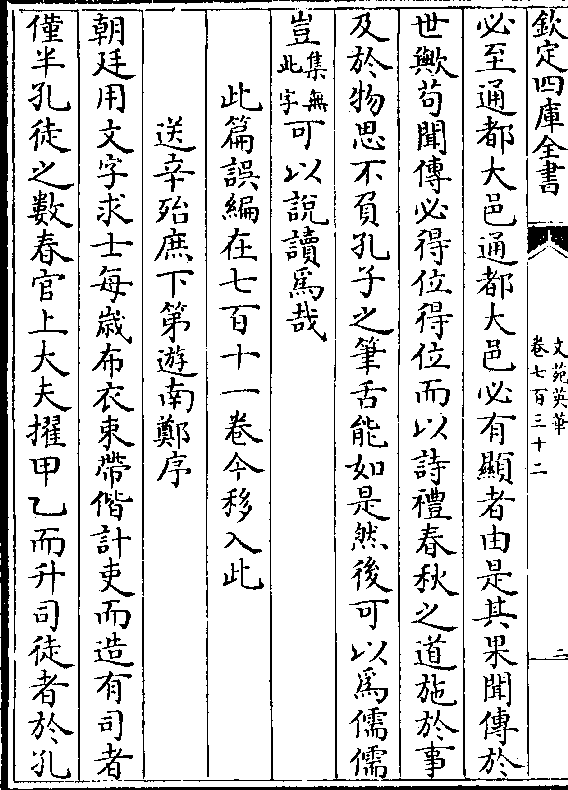 欽定四庫全書
文苑英華
卷七百三十二
二
必至通都大邑通都大邑必有顯者由是其果聞傳於
世歟苟聞傳必得位得位而以詩禮春秋之道施於事
及於物思不負孔子之筆舌能如是然後可以為儒儒
豈集無此字可以說讀為哉
此篇誤編在七百十一卷今移入此
送辛殆庶下第遊南鄭序
朝廷用文字求士每歲布衣束帶偕計吏而造有司者
僅半孔徒之數春官上大夫擢甲乙而升司徒者於孔